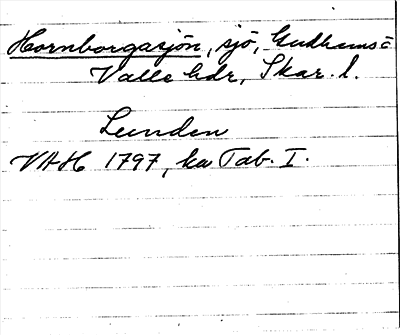 Hornborgasjön, sjö, Gudhems o
Valle hdr, Skar. l.
Lunden
VAH 1797, ka Tab. I.